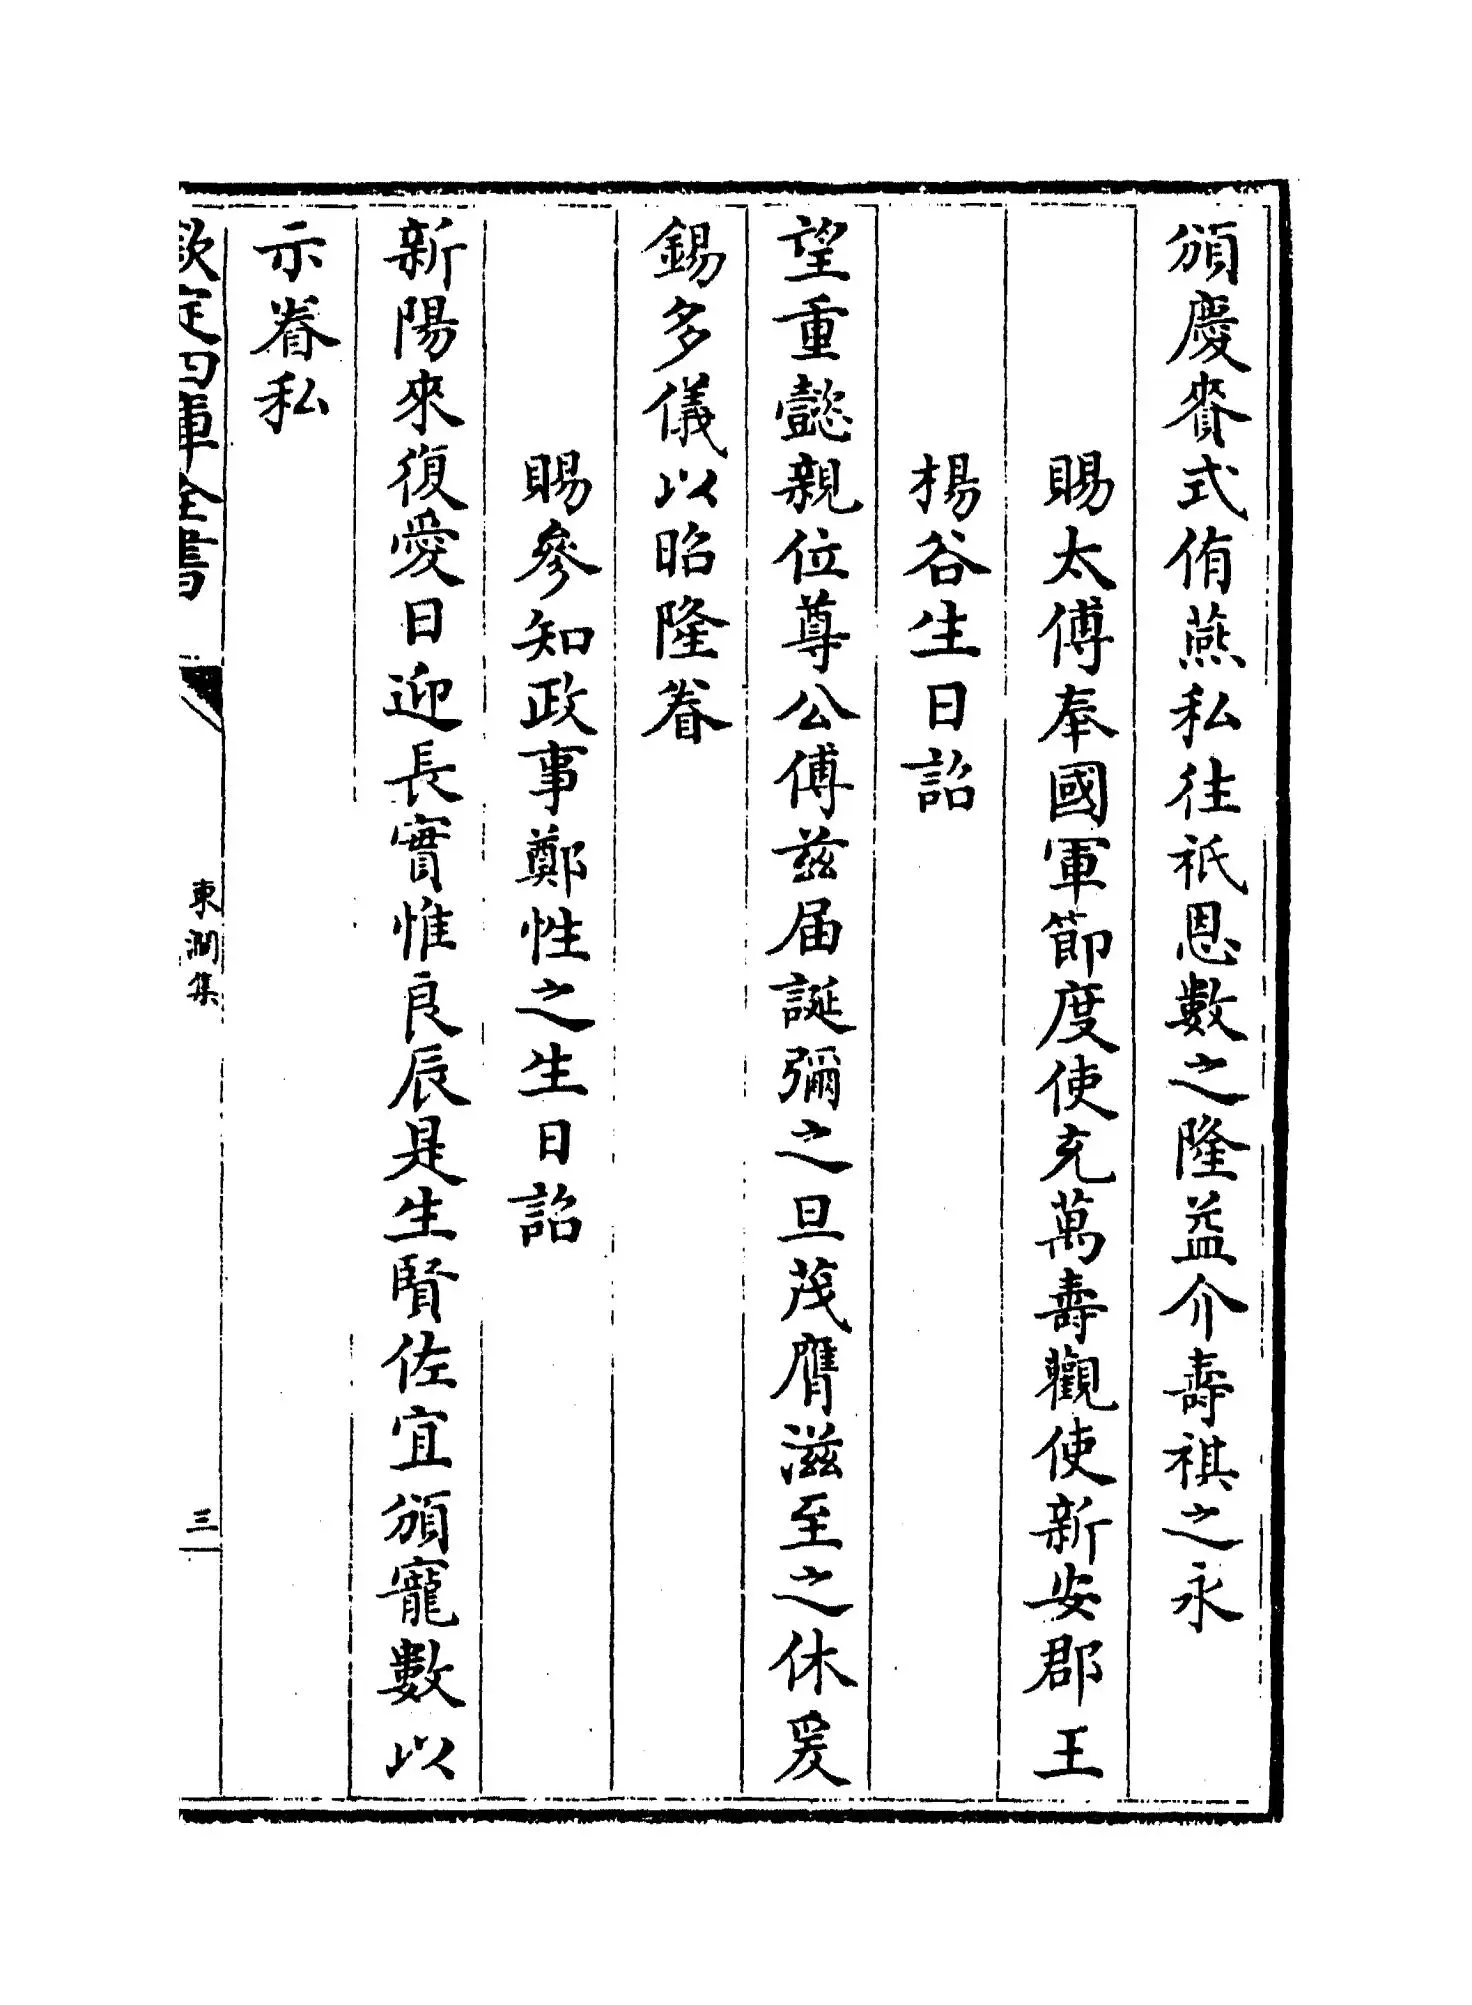 頒慶賚式侑燕私往祇恩數之隆益介壽祺之永
賜太傅奉國軍節度使充萬壽觀使新安郡王
楊谷生日詔
望重懿親位尊公傅兹届誕彌之旦茂膺滋至之休爰
錫多儀以昭隆眷
賜參知政事鄭性之生日詔
新陽來復愛日迎長實惟良辰是生賢佐宜頒寵數以
示眷私
欽定四庫全書
東澗集
三